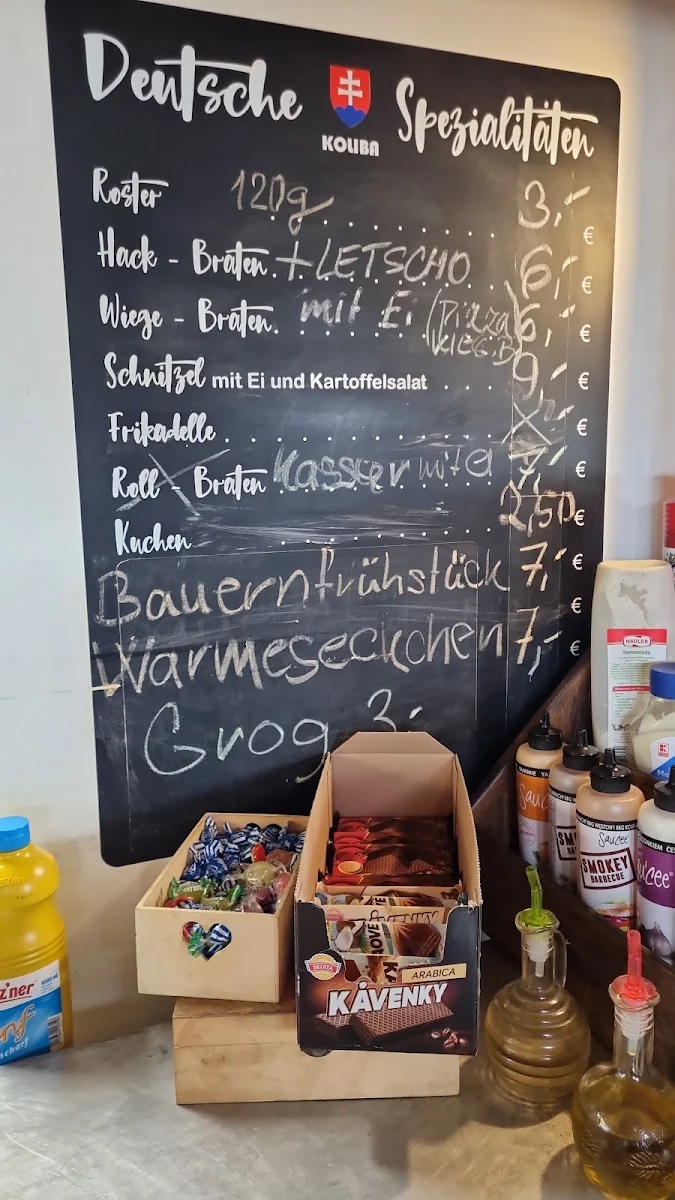 Deutsche Spezialitäten
KOLIBA
Roster 120g 3,- €
Hack - Braten + LETSCHO 6,- €
Wiege - Braten mit Ei (Pizza 6,- €
Schnitzel mit Ei und Kartoffelsalat 9,- €
Frikadelle X,- €
Roll - Braten Kassler mit ei 7,- €
Kuchen 2,50 €
Bauernfrühstück 7,- €
Warmeseckchen 7,- €
Grog 3,-
HADLER
Remoulade
SMOKEY
BARBECUE
SEDITA
ARABICA
KÁVENKY
LOVE
KÁVENKY
z'ner
1000 ml
scharf